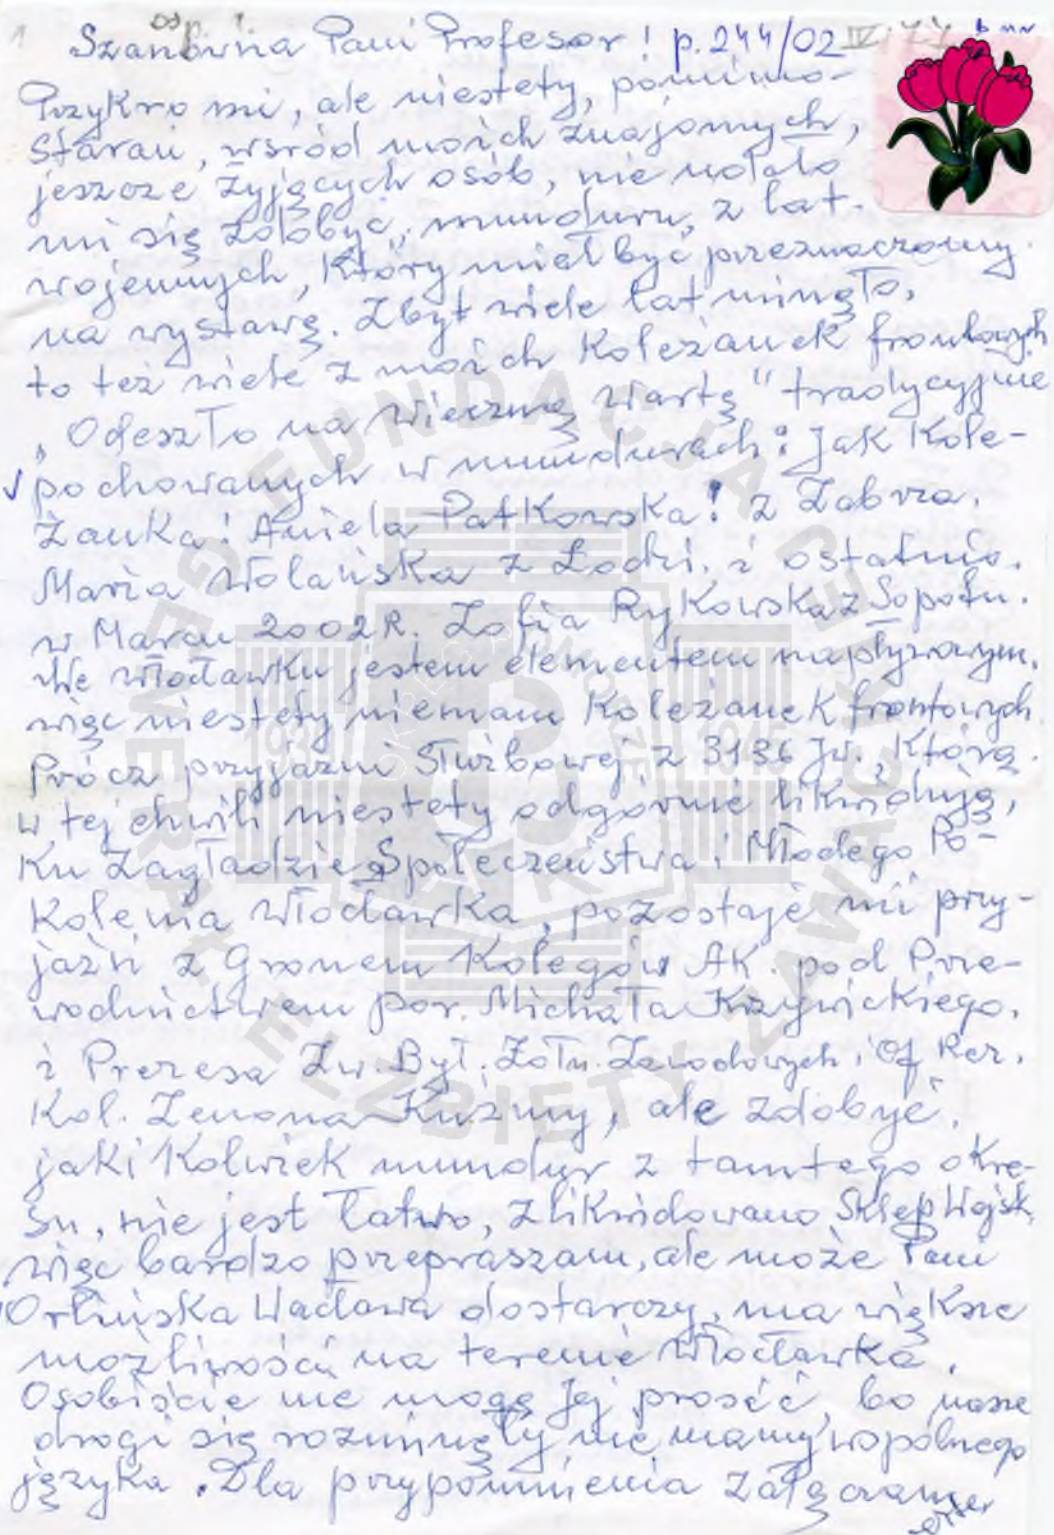 1 osp. 1.
Szanowna Pani Profesor! p. 244/02 b nr
Przykro mi, ale niestety, pomimo-
starań, wsród moich znajomych,
jeszcze żyjących osób, nie udało
mi się zdobyć, munduru, z lat-
wojennych, który miał być przeznaczony
na wystawę. Zbyt wiele lat minęło,
to też wiele z moich Koleżanek frontowych
„Odeszło na Wieczną Wartę" tradycyjnie
pochowanych w mundurach: Jak Kole-
żanka: Aniela Patkowska! z Zabrza.
Maria Wolańska z Łodzi. i ostatnio.
w Marcu 2002R. Zofia Rykowska z Sopotu.
We Włocławku jestem elementem napływowym,
więc niestety niemam Koleżanek frontowych.
Prócz przyjaźni Służbowej, z 3136 Jw., Którą.
w tej chwili niestety odgórnie likwidują,
Ku Zagładzie Społeczeństwa i Młodego Po-
kolenia Włocławka, pozostaje mi przy-
jaźń z Gronem Kolegów AK. pod Prze-
wodnictwem por. Michała Krzywickiego,
i Prezesa Zw. Był. Żołn. Zawodowych i Of Rez.
Kol. Zenona Kuźmy, ale zdobyć,
jaki Kolwiek mundur z tamtego okre-
su, nie jest łatwo, zlikwidowano Sklep Wojsk,
więc bardzo przepraszam, ale może Pani
Orlińska Wacława dostarczy, ma większe
możliwości na terenie Włocławka.
Osobiście nie mogę Jej prosić, bo nasze
drogi się rozminęły nie mamy wspólnego
języka. Dla przypomnienia załączam
FUNDACJA GENERAŁ ELŻBIETY ZAWACKIEJ
1939 1945
AK